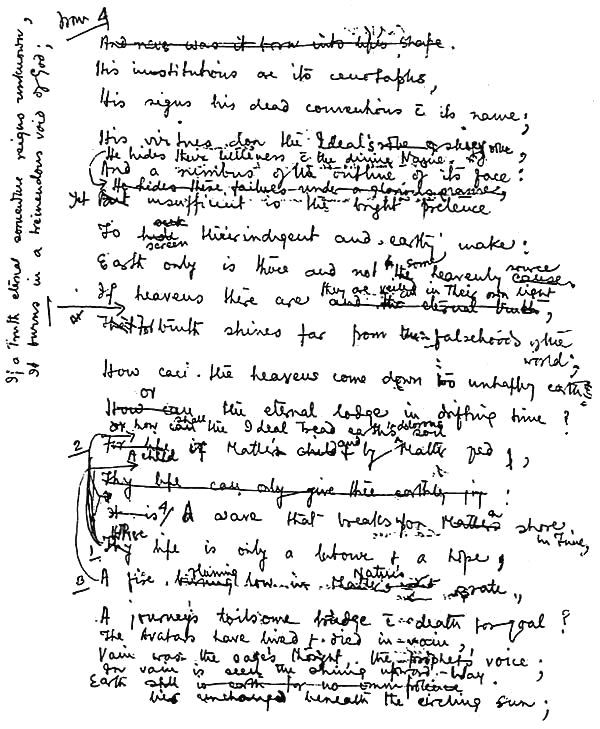 from 4
And never was it born into life's shape.
His institutions are its cenotaphs,
His signs his dead conventions c its name;
His virtues don the Ideal's robe of skiey
He hides their littleness c the divine Name;
And a nimbus of the outline of its face:
He hides these failures under a glorious
Yet But insufficient is the bright pretence
To hide seek screen their indigent and earthy make:
Earth only is there and not some the heavenly source cause.
If heavens there are they are veiled in their own light and the eternal truth,
If a Truth eternal somewhere reigns unknown,
It burns in a tremendous void of God;
That For truth shines far from the falsehoods of the world;
How can the heavens come down to unhappy earth
How can or the eternal lodge in drifting time?
or how can shall the Ideal tread earth's dolorous soil
2 For life is Matter's child and by Matter fed,
A child
Thy life can only give thee earthly joy:
It is A wave that breaks for Matter's a shore in Time,
1 Where Thy life is only a labour & a hope,
3 A fire flaming burning low in Nature's grate,
A journey's toilsome trudge c death for goal?
The Avatars have lived & died in vain,
Vain was the sage's thought, the prophet's voice;
In vain is seen the shining upward Way.
Earth still is earth for
lies unchanged beneath the circling sun;